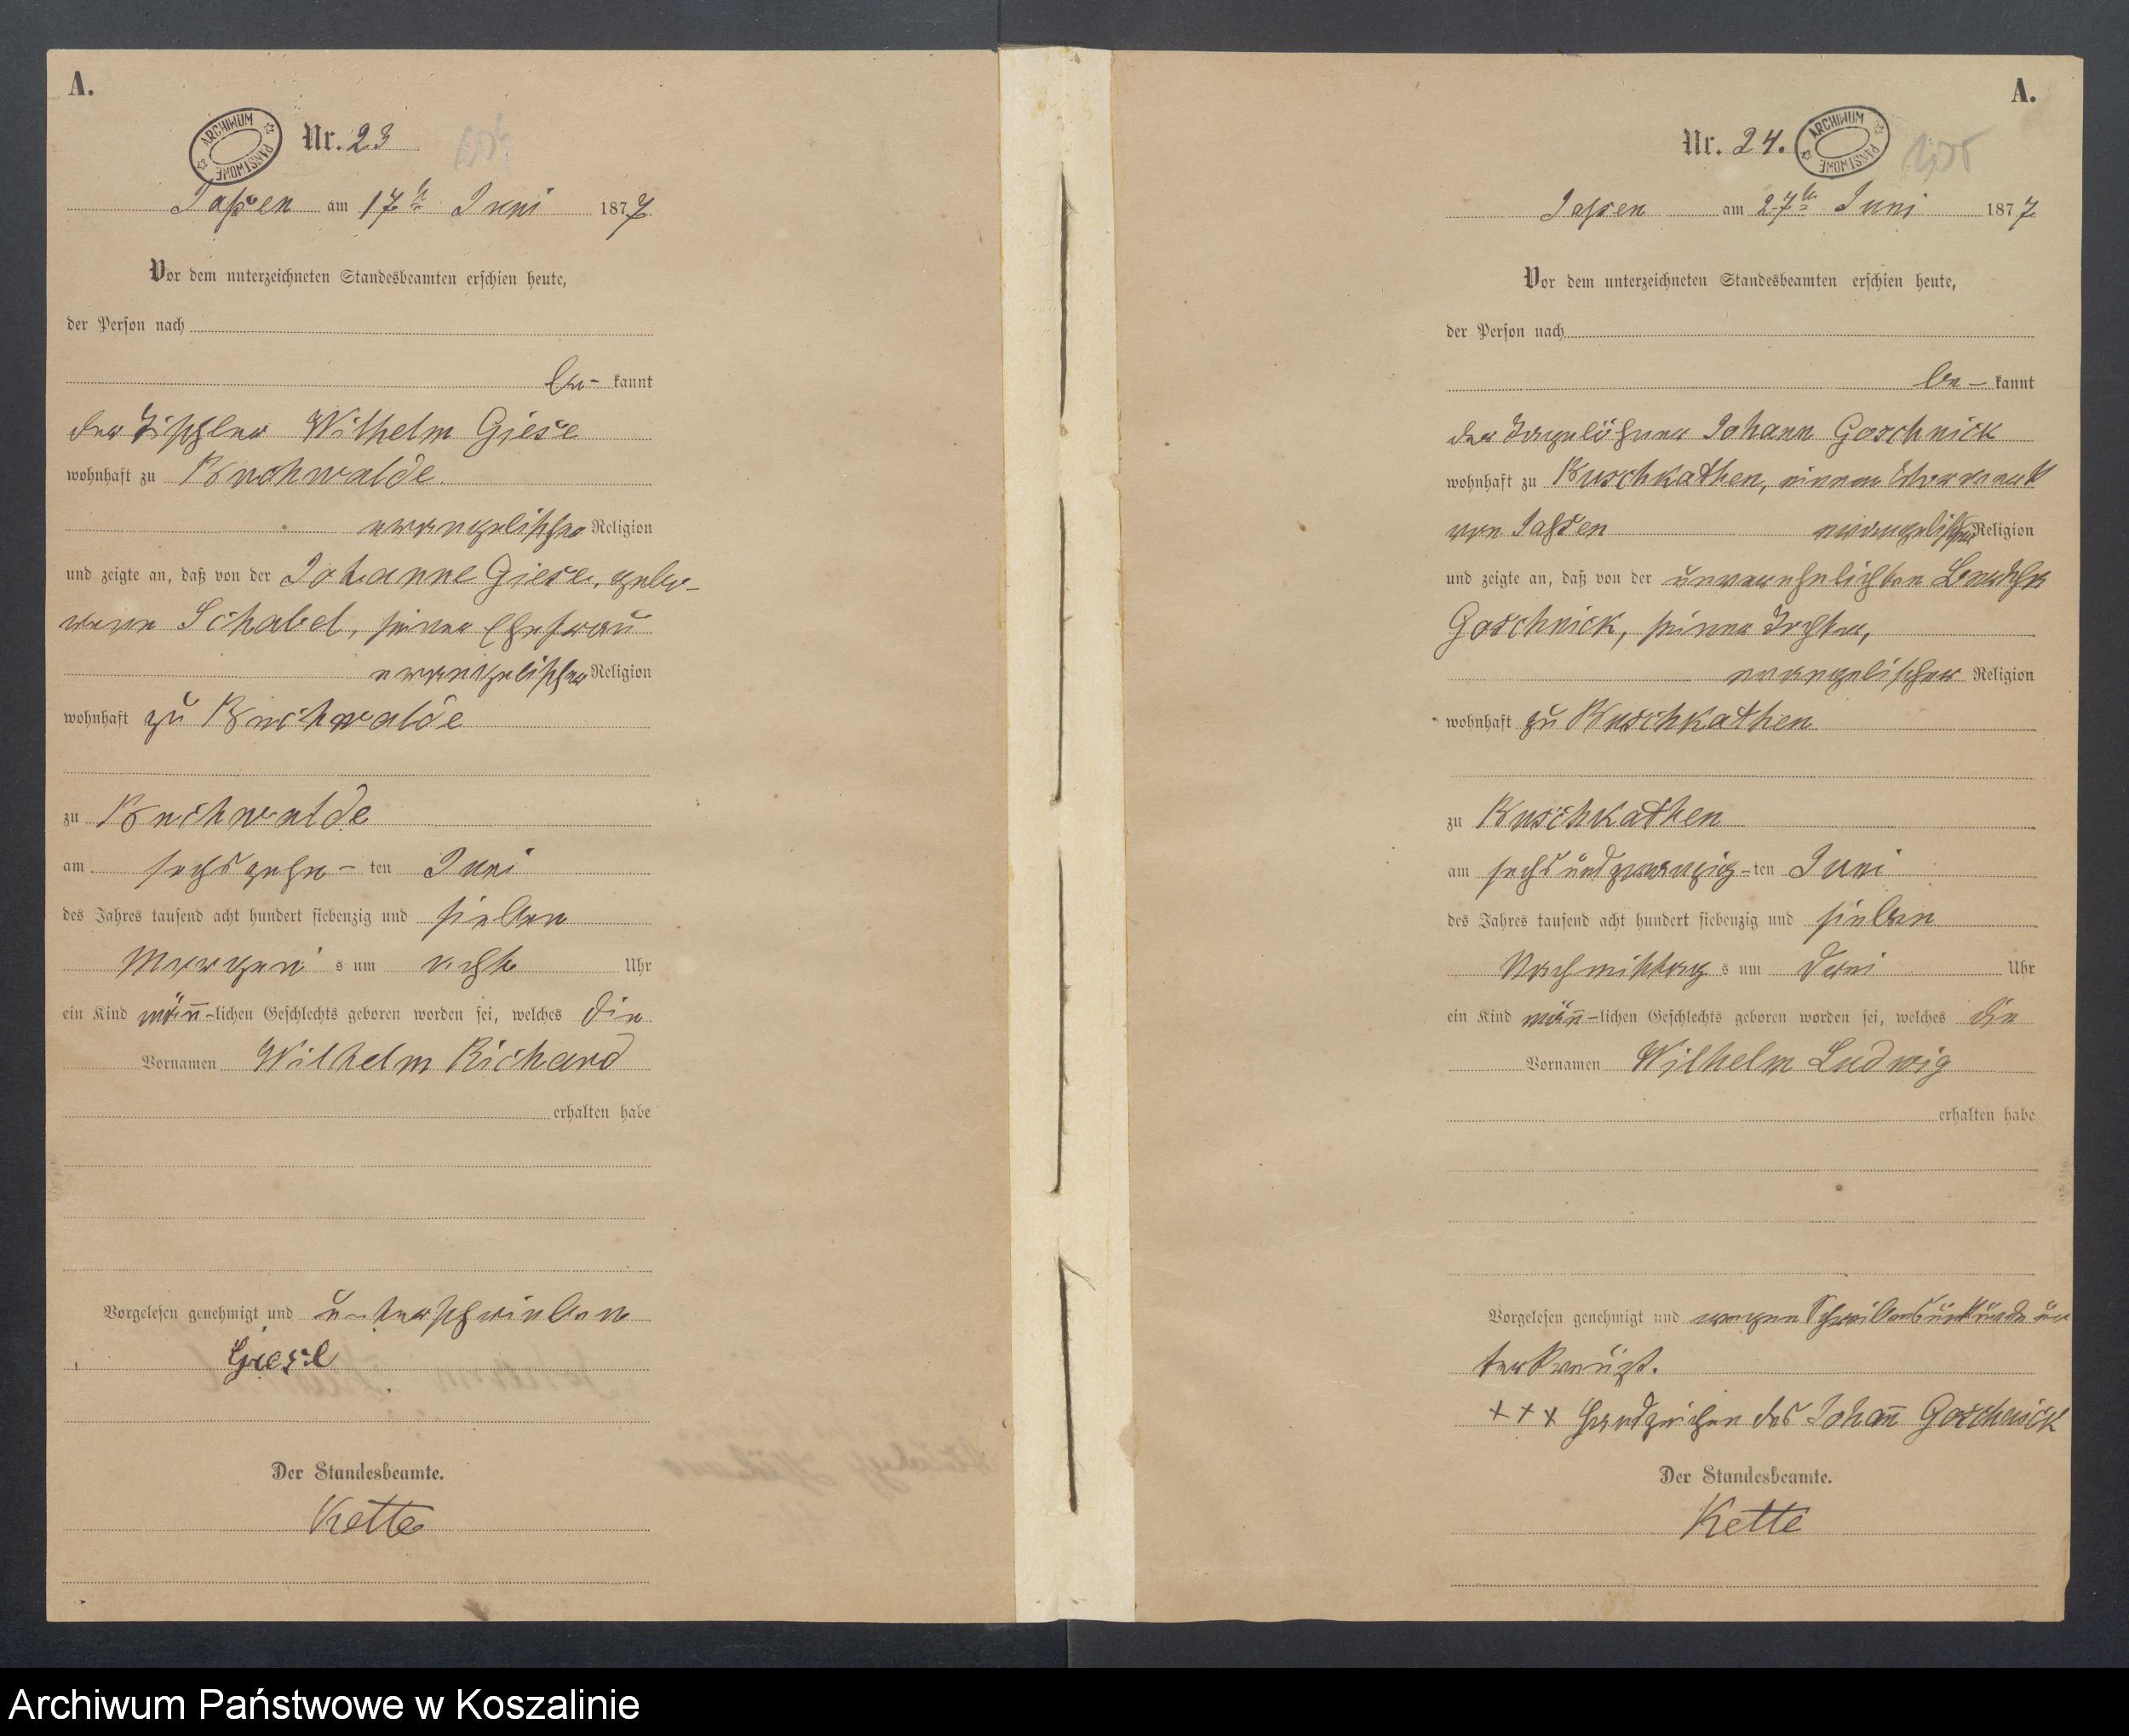 A.
ARCHIWUM PAŃSTWOWE
Nr. 23
Jassen am 17te Juni 1877
Vor dem unterzeichneten Standesbeamten erschien heute,
der Person nach
be- kannt
der Tischler Wilhelm Giese
wohnhaft zu Buchwalde
evangelischer Religion
und zeigte an, daß von der Johanne Giese, gebo-
renen Schabel, seiner Ehefrau
evangelischer Religion
wohnhaft zu Buchwalde
zu Buchwalde
am sechszehn- ten Juni
des Jahres tausend acht hundert siebenzig und sieben
Morgen s um acht Uhr
ein Kind män̄-lichen Geschlechts geboren worden sei, welches die
Vornamen Wilhelm Richard
erhalten habe
Vorgelesen genehmigt und unterschrieben
Giese
Der Standesbeamte.
Kette
A.
Nr. 24.
ARCHIWUM PAŃSTWOWE
105
Jassen am 27te Juni 1877
Vor dem unterzeichneten Standesbeamten erschien heute,
der Person nach
be- kannt
der Tagelöhner Johann Goschnick
wohnhaft zu Buschkathen, einem
von Jassen evangelischer Religion
und zeigte an, daß von der unverehelichten
Goschnick, seiner Tochter,
evangelischer Religion
wohnhaft zu Buschkathen
zu Buschkathen
am sechsundzwanzig-ten Juni
des Jahres tausend acht hundert siebenzig und sieben
Nachmittag s um drei Uhr
ein Kind män̄-lichen Geschlechts geboren worden sei, welches die
Vornamen Wilhelm Ludwig
erhalten habe
Vorgelesen genehmigt und wegen Schreibensunkunde un
terkreuzt.
+++ Handzeichen des Johan̄ Goschnick
Der Standesbeamte.
Kette
Archiwum Państwowe w Koszalinie